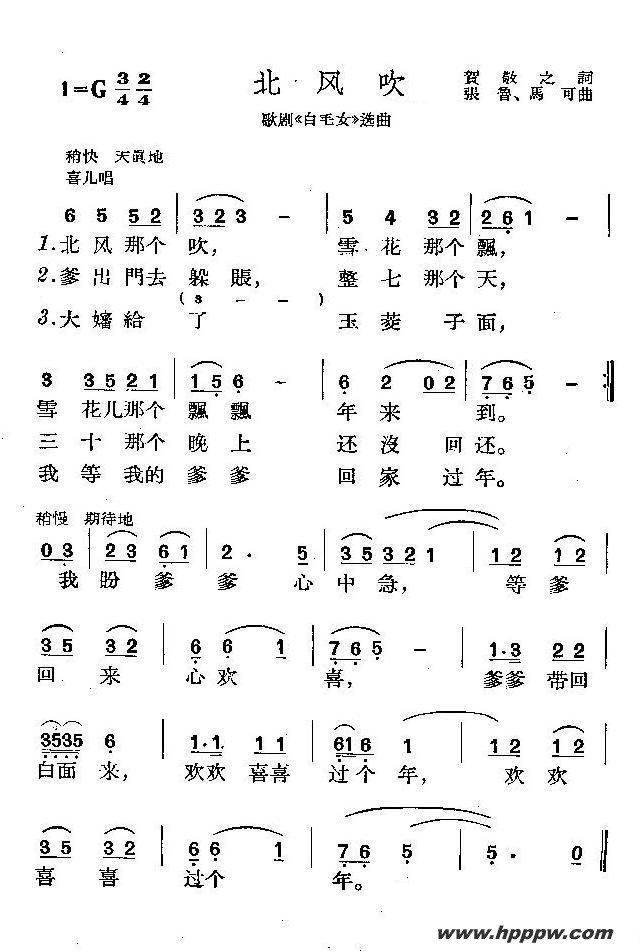 1=G 3/4 2/4
北风吹
賀敬之詞
張魯、馬可曲
歌剧《白毛女》选曲
稍快 天眞地
喜儿唱
6 5 5 2 | 3 2 3 - | 5 4 3 2 | 2 6 1 - |
1.北风那个吹, 雪花那个飄,
2.爹出門去躲賬, 整七那个天,
( 3 - - )
3.大嬸給了 玉菱子面,
3 3 5 2 1 | 1 5 6 - | 6 2 0 2 | 7 6 5 - :||
雪花儿那个飄飄 年来到。
三十那个晚上 还沒回还。
我等我的爹爹 回家过年。
稍慢 期待地
0 3 | 2 3 6 1 | 2 · 5 | 3 5 3 2 1 | 1 2 1 2 |
我盼爹爹心中急, 等爹
3 5 3 2 | 6 6 1 | 7 6 5 | 1 · 3 2 2 |
回来心欢喜, 爹爹带回
3 5 3 5 6 | 1 · 1 1 1 | 6 1 6 1 | 1 2 1 2 |
白面来, 欢欢喜喜过个年, 欢欢
3 5 3 2 | 6 6 1 | 7 6 5 | 5 · 0 ||
喜喜过个年。
www.hpppw.com